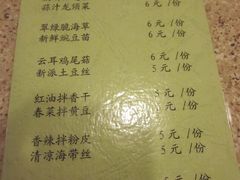 蒜汁龙须菜 6元/份
翠绿脆海草 6元/份
新鲜豌豆苗 6元/份
云耳鸡尾菇 6元/份
新派土豆丝 5元/份
红油拌香干 5元/份
春菜拌黄豆 5元/份
香辣拌粉皮 5元/份
清凉海带丝 5元/份